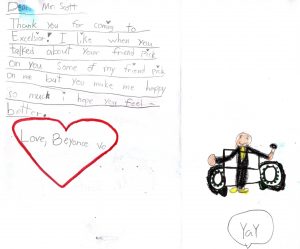 Dear Mr. Scott
Thank you for coming to
Excelsior! I like when you
talked about your friend pick
on you Some of my friend pick
on me but you make me happy
so much i hope you feel
better.
Love, Beyonce
YaY